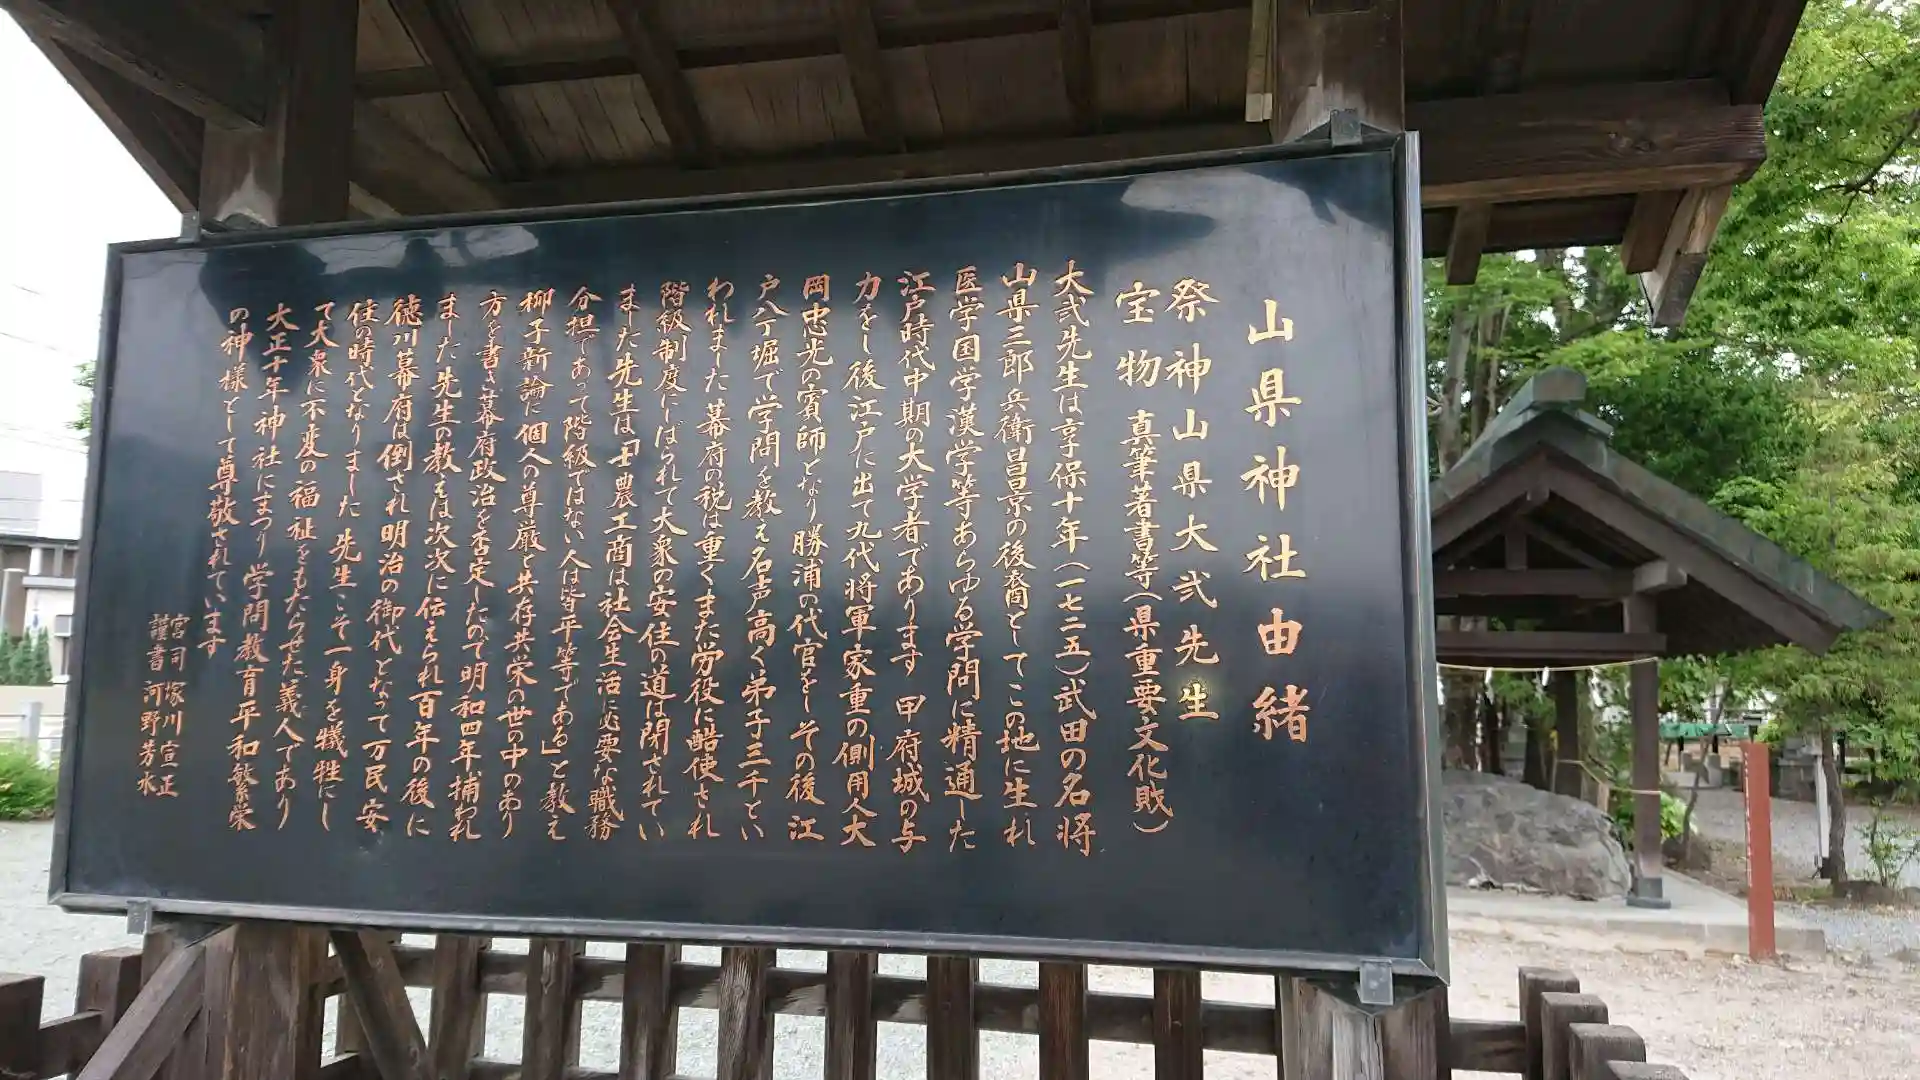 山県神社由緒
祭神山県大弐先生
宝物 真筆著書等(県重要文化財)
大弐先生は享保十年(一七二五)武田の名将
山県三郎兵衛昌景の後裔としてこの地に生れ
医学国学漢学等あらゆる学問に精通した
江戸時代中期の大学者であります 甲府城の与
力をし後江戸に出て九代将軍家重の側用人大
岡忠光の賓師となり勝浦の代官をしその後江
戸八丁堀で学問を教え名声高く弟子三千とい
われました 幕府の税は重くまた労役に酷使され
階級制度にしばられて大衆の安住の道は閉されてい
ました先生は「士農工商は社会生活に必要な職務
分担であって階級ではない人は皆平等である」と教え
柳子新論に個人の尊厳と共存共栄の世の中のあり
方を書き幕府政治を否定したので明和四年捕われ
ました先生の教えは次次に伝えられ百年の後に
徳川幕府は倒され明治の御代となって万民安
住の時代となりました 先生こそ一身を犠牲にし
て大衆に不変の福祉をもたらせた義人であり
大正十年神社にまつり 学問教育平和繁栄
の神様として尊敬されています
宮司 塚川宣正
謹書 河野芳水